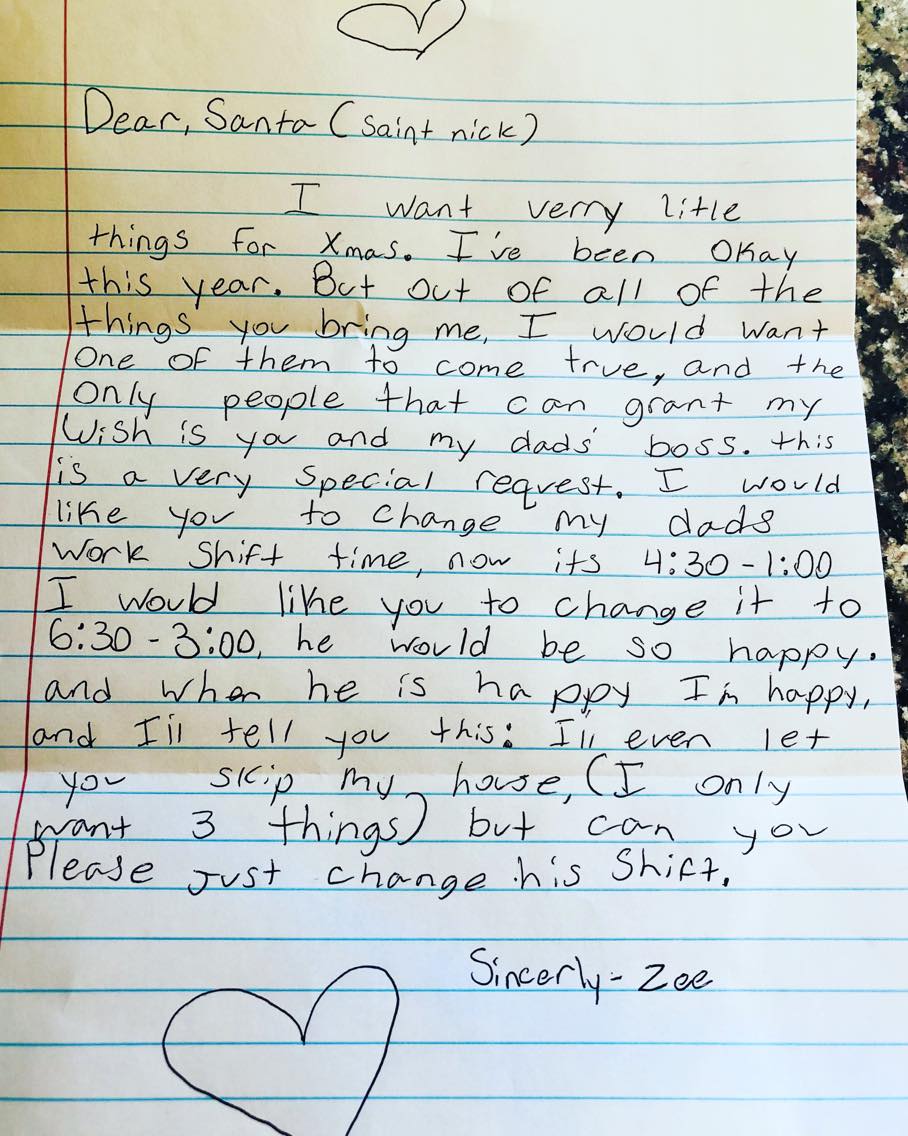 Dear, Santa (saint nick)
I want verry litle
things for Xmas. I've been Okay
this year. But out of all of the
things you bring me, I would want
one of them to come true, and the
only people that can grant my
Wish is you and my dads' boss. this
is a very special request. I would
like you to change my dads
work shift time, now its 4:30-1:00
I would like you to change it to
6:30-3:00, he would be so happy.
and when he is happy I'm happy,
and I'll tell you this: I'll even let
you skip my house, (I only
want 3 things) but can you
Please Just change his Shift.
Sincerly- Zoe